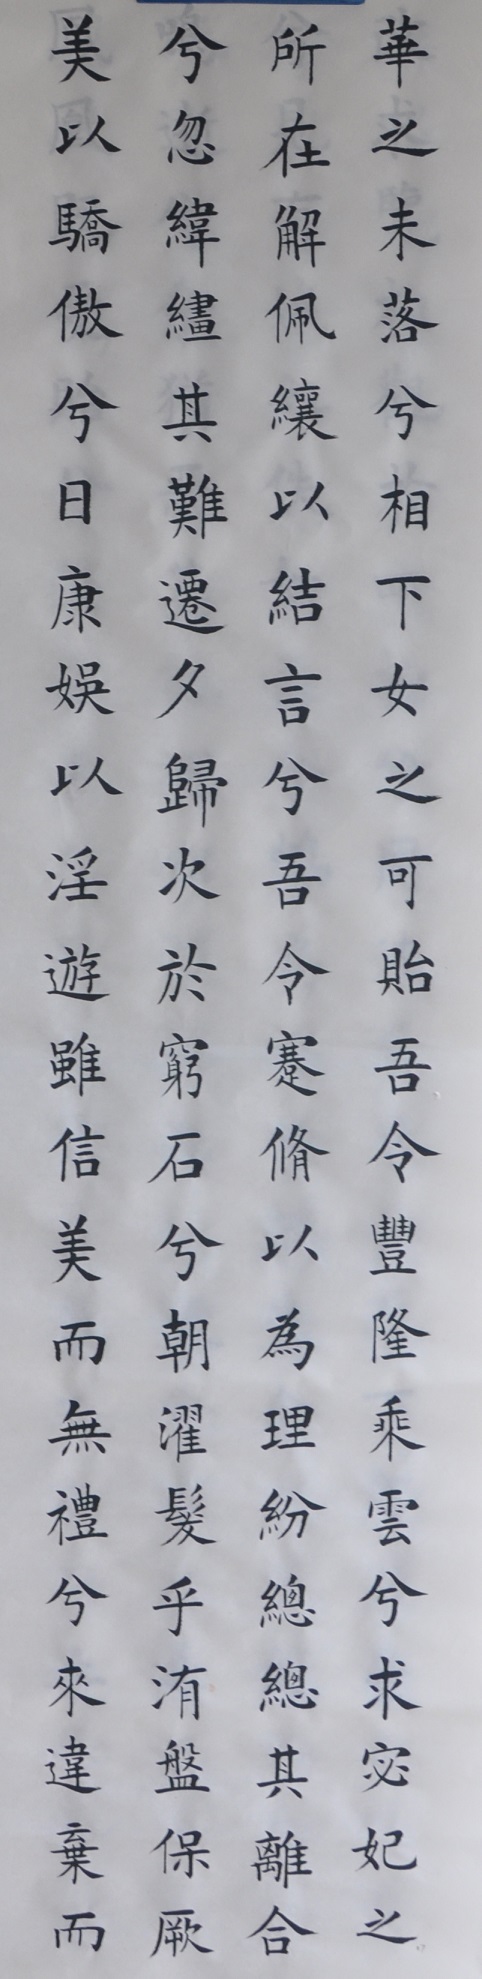 華之未落兮相下女之可貽吾令豐隆乘雲兮求宓妃之
所在解佩纕以結言兮吾令蹇脩以為理紛總總其離合
兮忽緯繣其難遷夕歸次於窮石兮朝濯髮乎洧盤保厥
美以驕傲兮日康娛以淫遊雖信美而無禮兮來違棄而